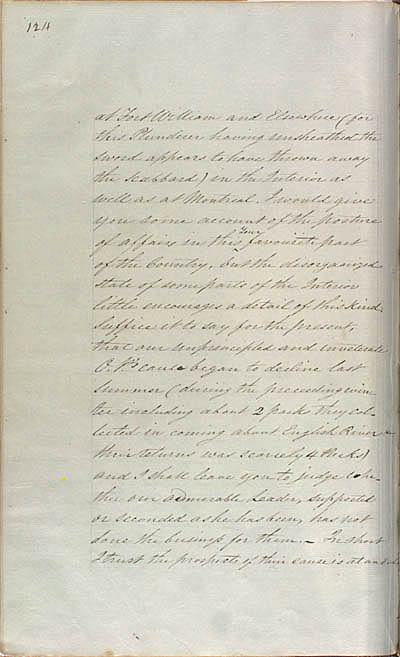 124
at Fort William and Elsewhere (for
this Plunderer having unsheathed the
sword appears to have thrown away
the Scabbard) in the Interior as
well as at Montreal. I would give
you some account of the posture
Your
of affairs in this favourite part
of the Country, but the disorganized
state of some parts of the Interior
little encourages a detail of this kind.
Suffice it to say for the present,
that our unprincipled and inveterate
O. Pts cause began to decline last
summer (during the preceeding win
ter including about 2 packs they col-
lected in coming about English River
their returns was scarcely 4 Packs)
and I shall leave you to judge whe
ther our admirable Leader, supported
or seconded as he has been, has not
done the business for them. – In short
I trust the prospects of their cause is at an